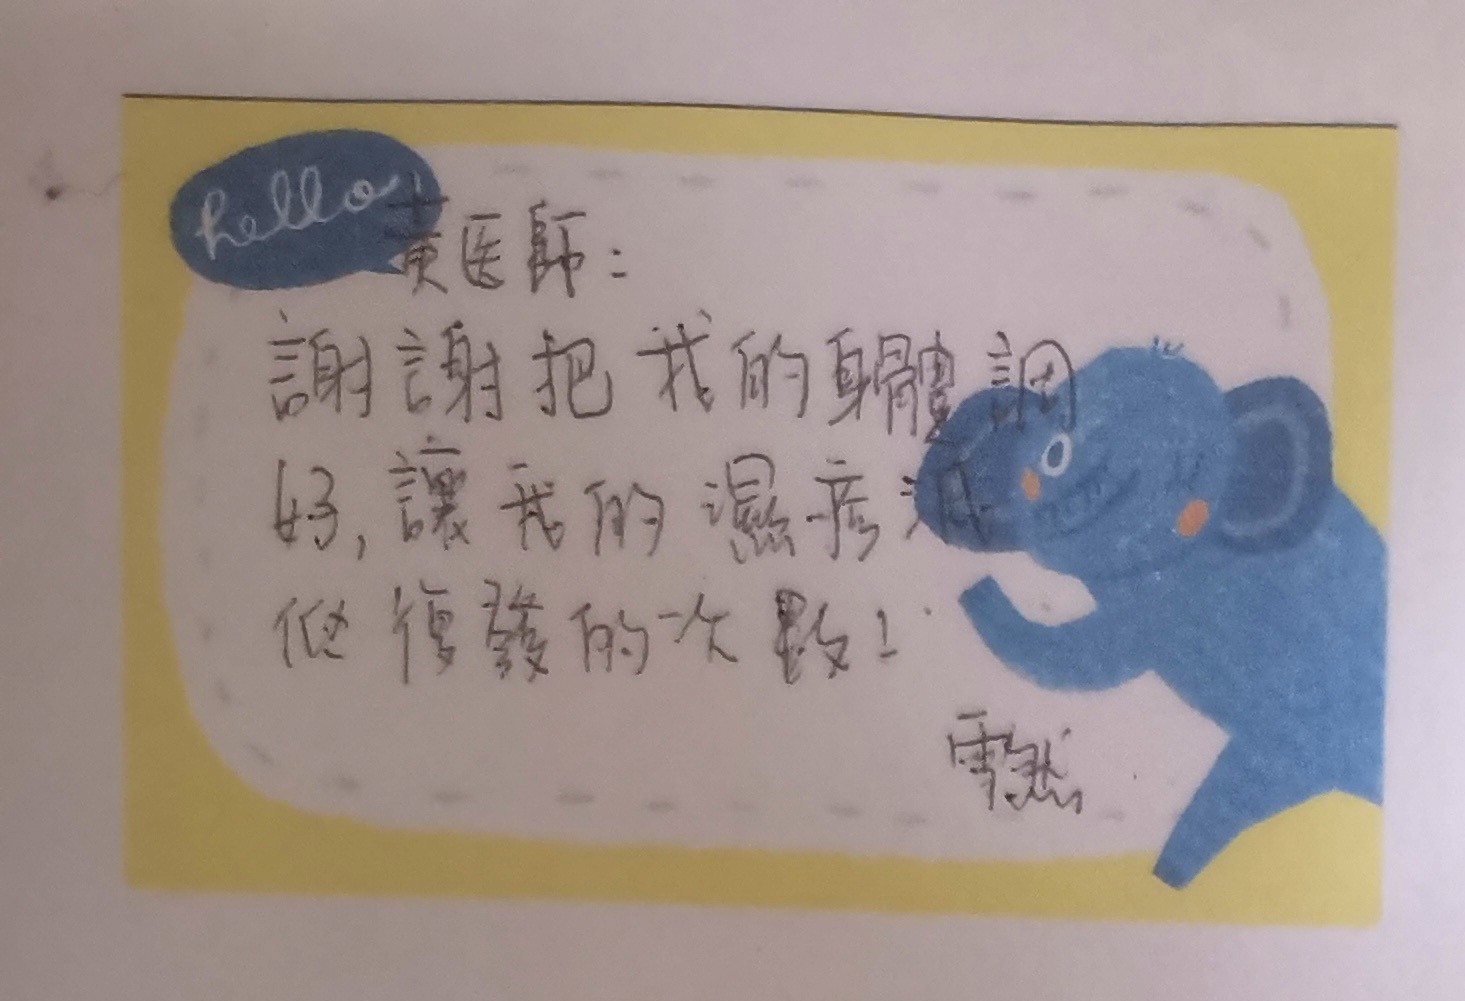 hello
黃医師：
謝謝把我的身體調
好，讓我的濕疹減
低復發的次數！
雪然